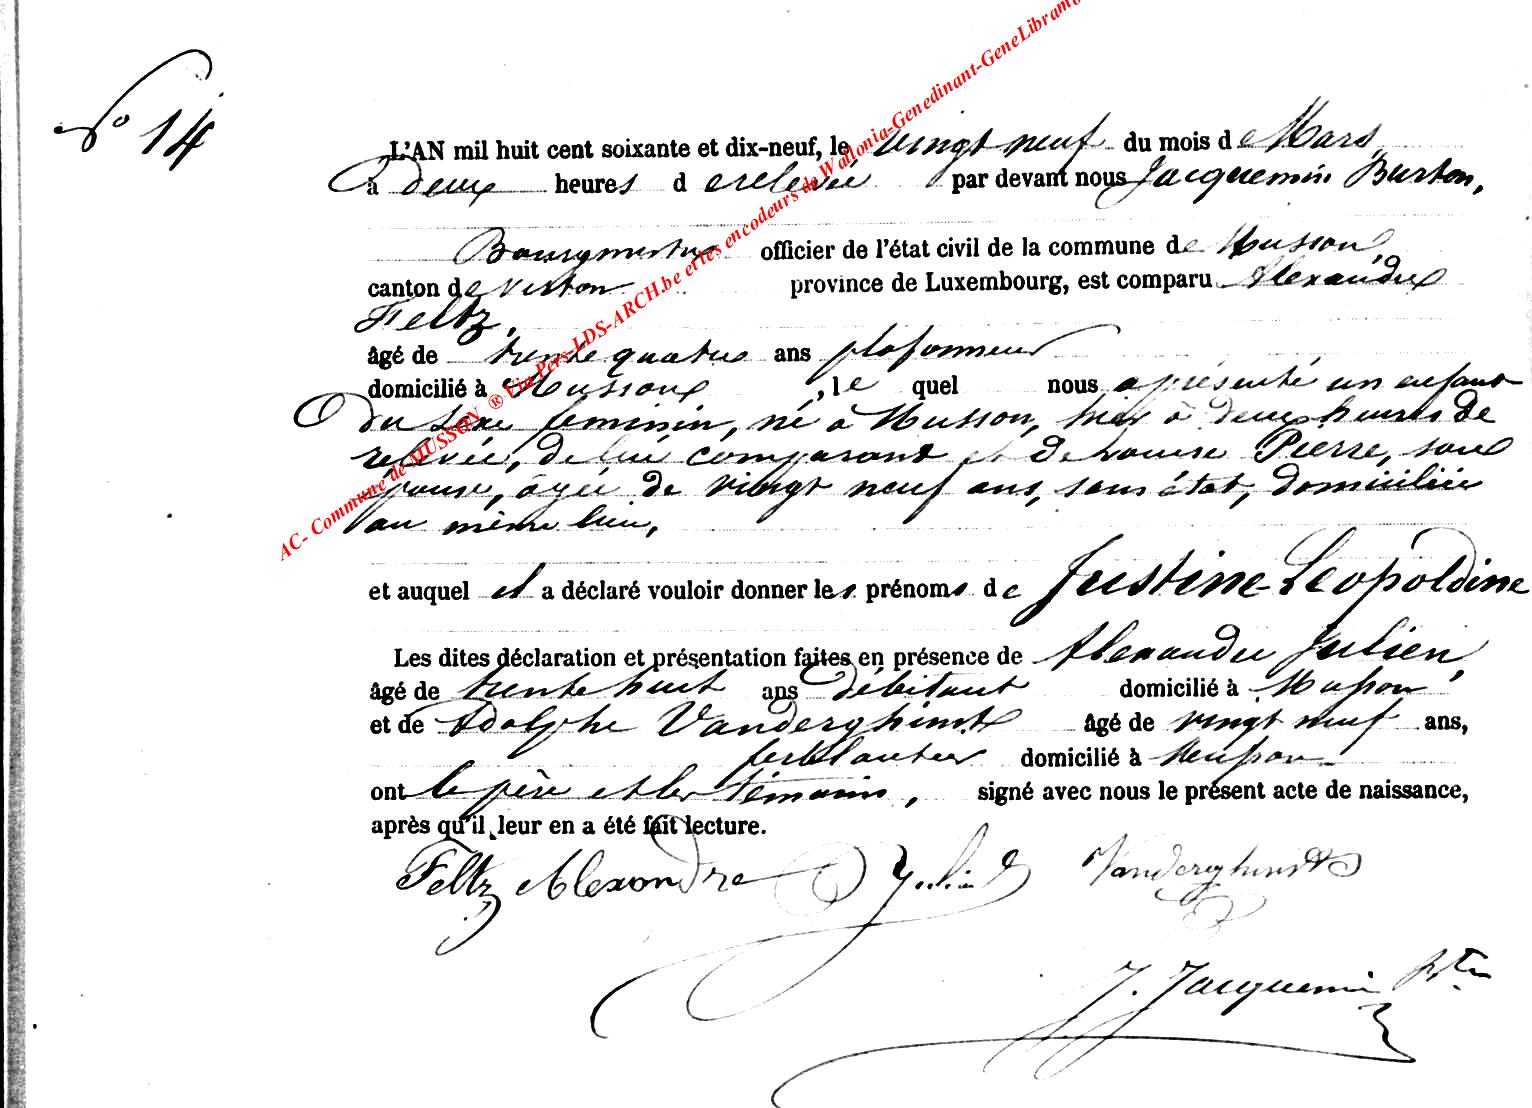 No 14
L'AN mil huit cent soixante et dix-neuf, le vingt neuf du mois de Mars
à deux heures de relevée par devant nous Jacquemin Burton,
Bourgmestre officier de l'état civil de la commune de Musson,
canton de Virton province de Luxembourg, est comparu Alexandre
Feltz,
âgé de trente quatre ans plafonneur
domicilié à Musson, le quel nous a présenté un enfant
du sexe feminin, né à Musson, hier à deux heures de
relevée, de lui comparant et de Louise Pierre, son
épouse, âgée de vingt neuf ans, sans état, domiciliée
au même lieu,
et auquel il a déclaré vouloir donner les prénoms de Justine Léopoldine
Les dites déclaration et présentation faites en présence de Alexandre Julien,
âgé de trente huit ans débitant domicilié à Musson,
et de Adolphe Vanderghinst âgé de vingt neuf ans,
ferblantier domicilié à Musson
ont le père et les témoins, signé avec nous le présent acte de naissance,
après qu'il leur en a été fait lecture.
Feltz Alexandre Julien Vanderghinst
J. Jacquemin Btn
AC- Commune de MUSSON ® Via Pers-LDS-ARCH.be et les encodeurs de Wallonia-Genedinant-GeneLibramo